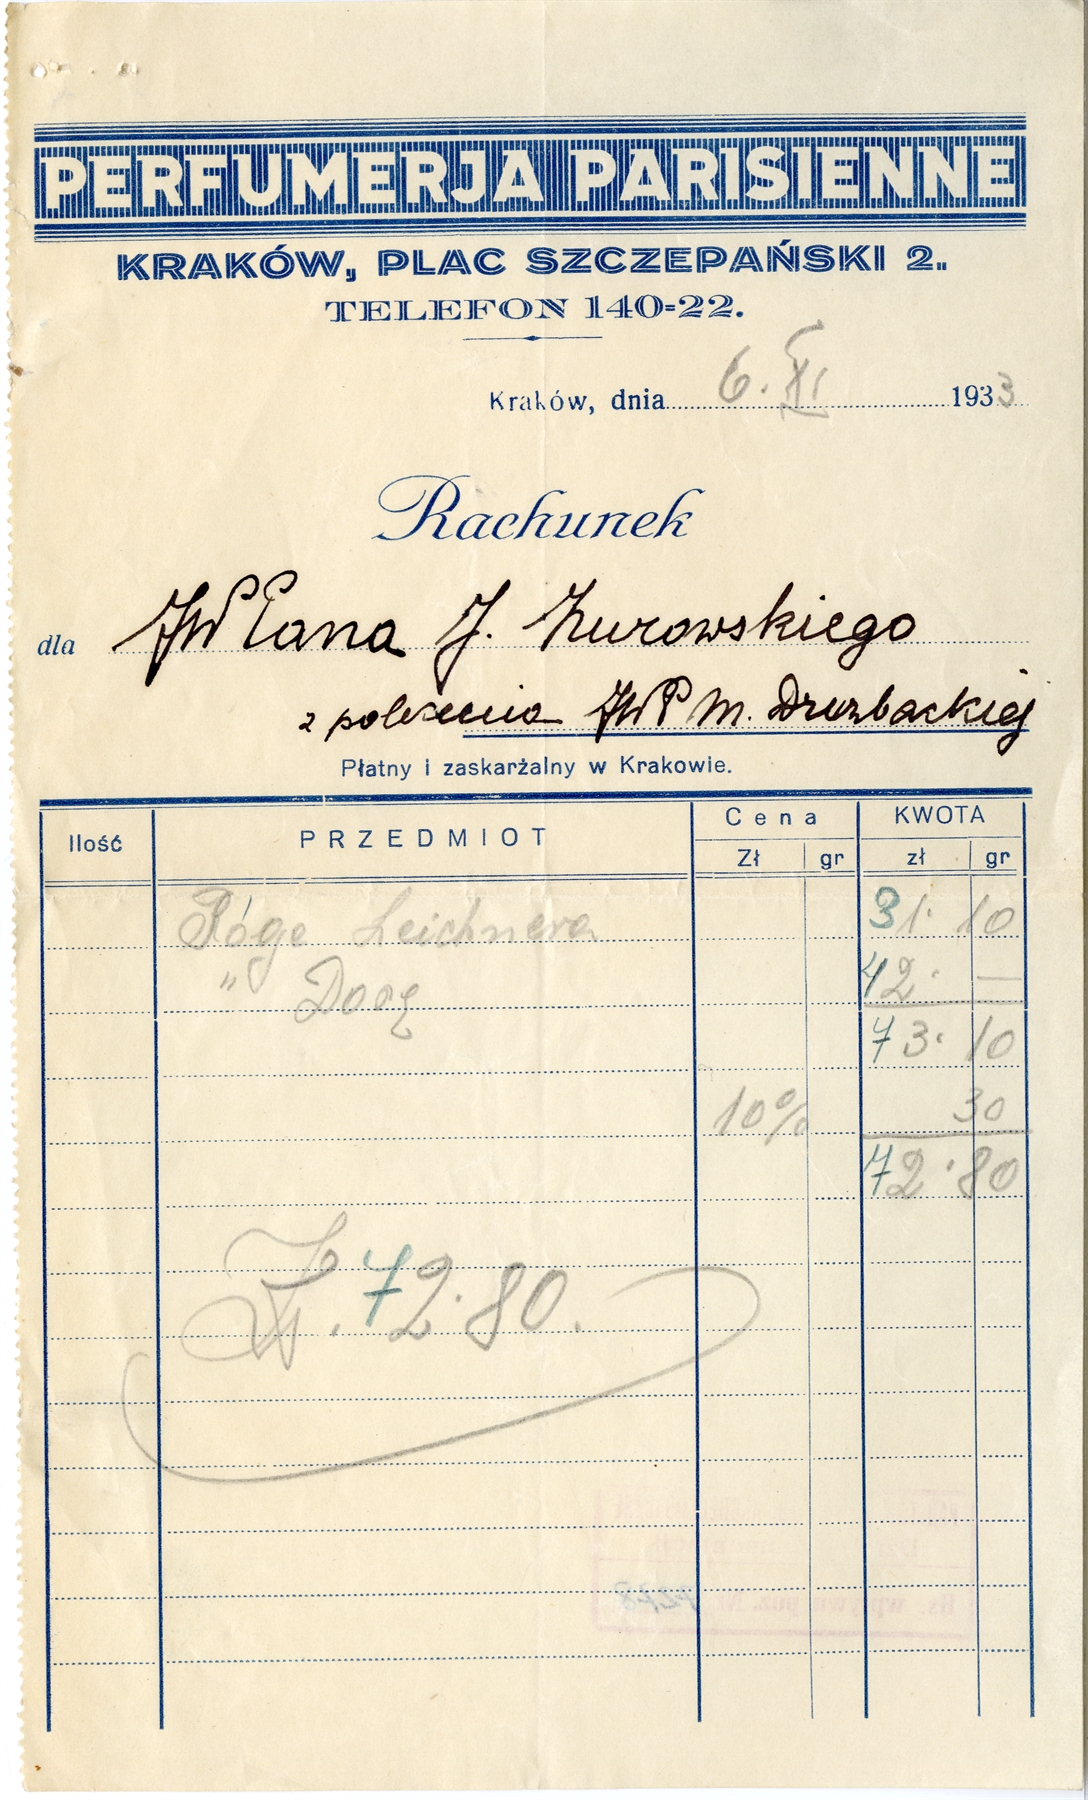 PERFUMERJA PARISIENNE
KRAKÓW, PLAC SZCZEPAŃSKI 2.
TELEFON 140-22.
Kraków, dnia 6. XI 1933
Rachunek
dla JWPana J. Żurowskiego
z polecenia JWP M. Druzbackiej
Płatny i zaskarżalny w Krakowie.
Ilość PRZEDMIOT Cena KWOTA
Zł gr zł gr
Róge Leichnera 31. 10
" 42. —
73. 10
10% 30
72. 80
Zł. 72.80.